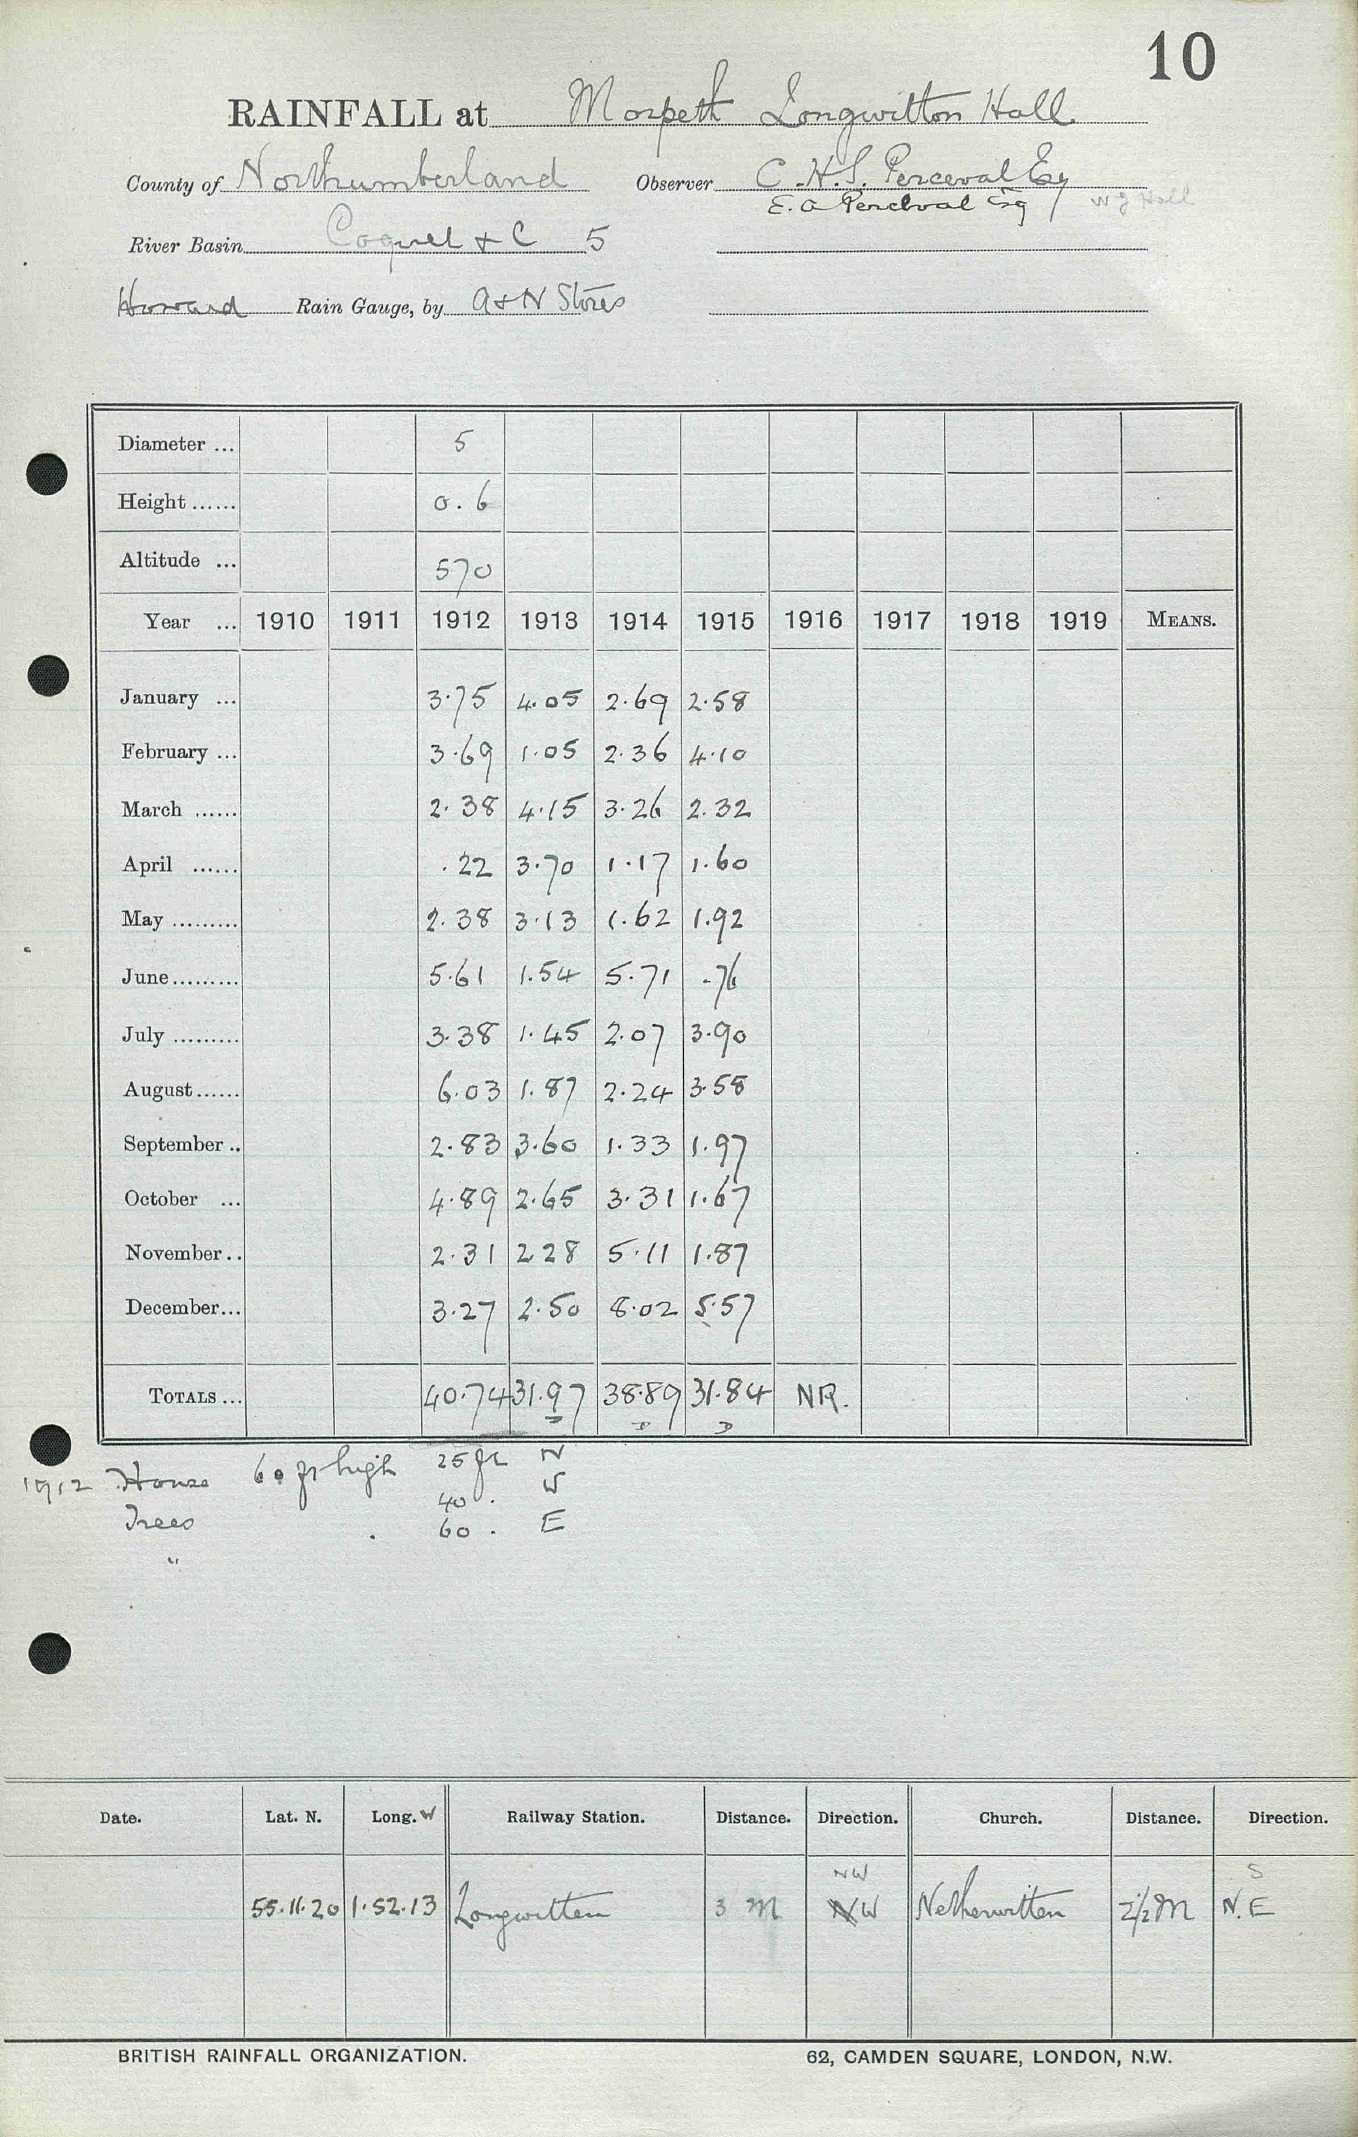 10
RAINFALL at Morpeth Longwitton Hall
County of Northumberland Observer C.H.S. Perceval Esq
E. A Percival Esq W J Hall
River Basin Coquet & C 5
Howard Rain Gauge, by A & N Stores
Diameter ... 5
Height ...... 0.6
Altitude ... 570
Year ... 1910 1911 1912 1913 1914 1915 1916 1917 1918 1919 MEANS.
January ... 3.75 4.05 2.69 2.58
February ... 3.69 1.05 2.36 4.10
March ...... 2.38 4.15 3.26 2.32
April ...... .22 3.70 1.17 1.60
May ......... 2.38 3.13 1.62 1.92
June ......... 5.61 1.54 5.71 .76
July ......... 3.38 1.45 2.07 3.90
August ...... 6.03 1.87 2.24 3.58
September .. 2.83 3.60 1.33 1.97
October ... 4.89 2.65 3.31 1.67
November .. 2.31 2 28 5.11 1.87
December ... 3.27 2.50 8.02 5.57
TOTALS ... 40.74 31.97 38.89 31.84 NR.
1912 House 60 ft high 25 ft N
Trees 40 . W
" . 60 . E
Date. Lat. N. Long. W Railway Station. Distance. Direction. Church. Distance. Direction.
NW S
55.11.20 1.52.13 Longwitton 3 M NW Netherwitton 2½ M N.E
BRITISH RAINFALL ORGANIZATION. 62, CAMDEN SQUARE, LONDON, N.W.